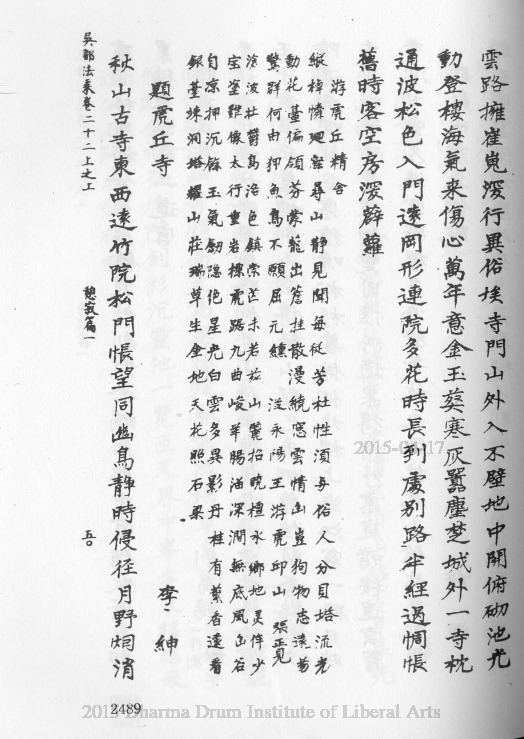 雲路擁崔嵬深行異俗埃寺門山外入不壁地中開俯砌池光
動登樓海氣来傷心萬年意金玉葬寒灰囂塵楚城外一寺枕
通波松色入門遠岡形連院多花時長到處別路半經過惆悵
舊時客空房深薜蘿
游虎丘精舍
縱棹憐迴壑尋山靜見聞每從芳杜性須与俗人分貝塔流光
動花臺偏領芬蒙蘢出簷挂散漫繞窓雲情幽豈狗物志遠易
驚群何由狎魚鳥不願屈元纁 從永陽王游虎邱山 張正見
滄波壮鬱島洛色鎮崇芒未若茲山麓招晚檀水鄉地灵侔少
宝塗艱像太行重岩標虎踞九曲峻羊腸溜深澗無底風幽谷
自凉押沉餘玉氣劒隐绝星光白雲多異影丹桂有䕺香遠看
銀臺竦洞塔耀山荘瑞草生金地天花照石梁
題虎丘寺
李紳
秋山古寺東西遠竹院松門悵望同幽鳥靜時侵径月野烟消
吳都法乘卷二十二上之上
憩寂篇一
五〇
2489
2015-04-17
2015 Dharma Drum Institute of Liberal Arts